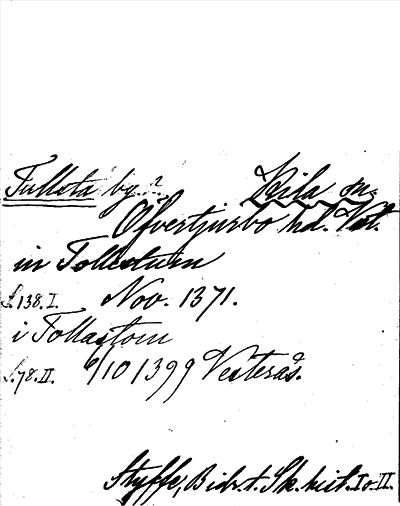 Fulleta by? Kila sn.
Öfvertjurbo hd. Vst.
in Tollestum
S. 138. I. Nov. 1371.
i Tollastom
S. 78. II. 6/10 1399 Vesterås.
Styffe, Bidr. t. Sk. hist. I o. II.